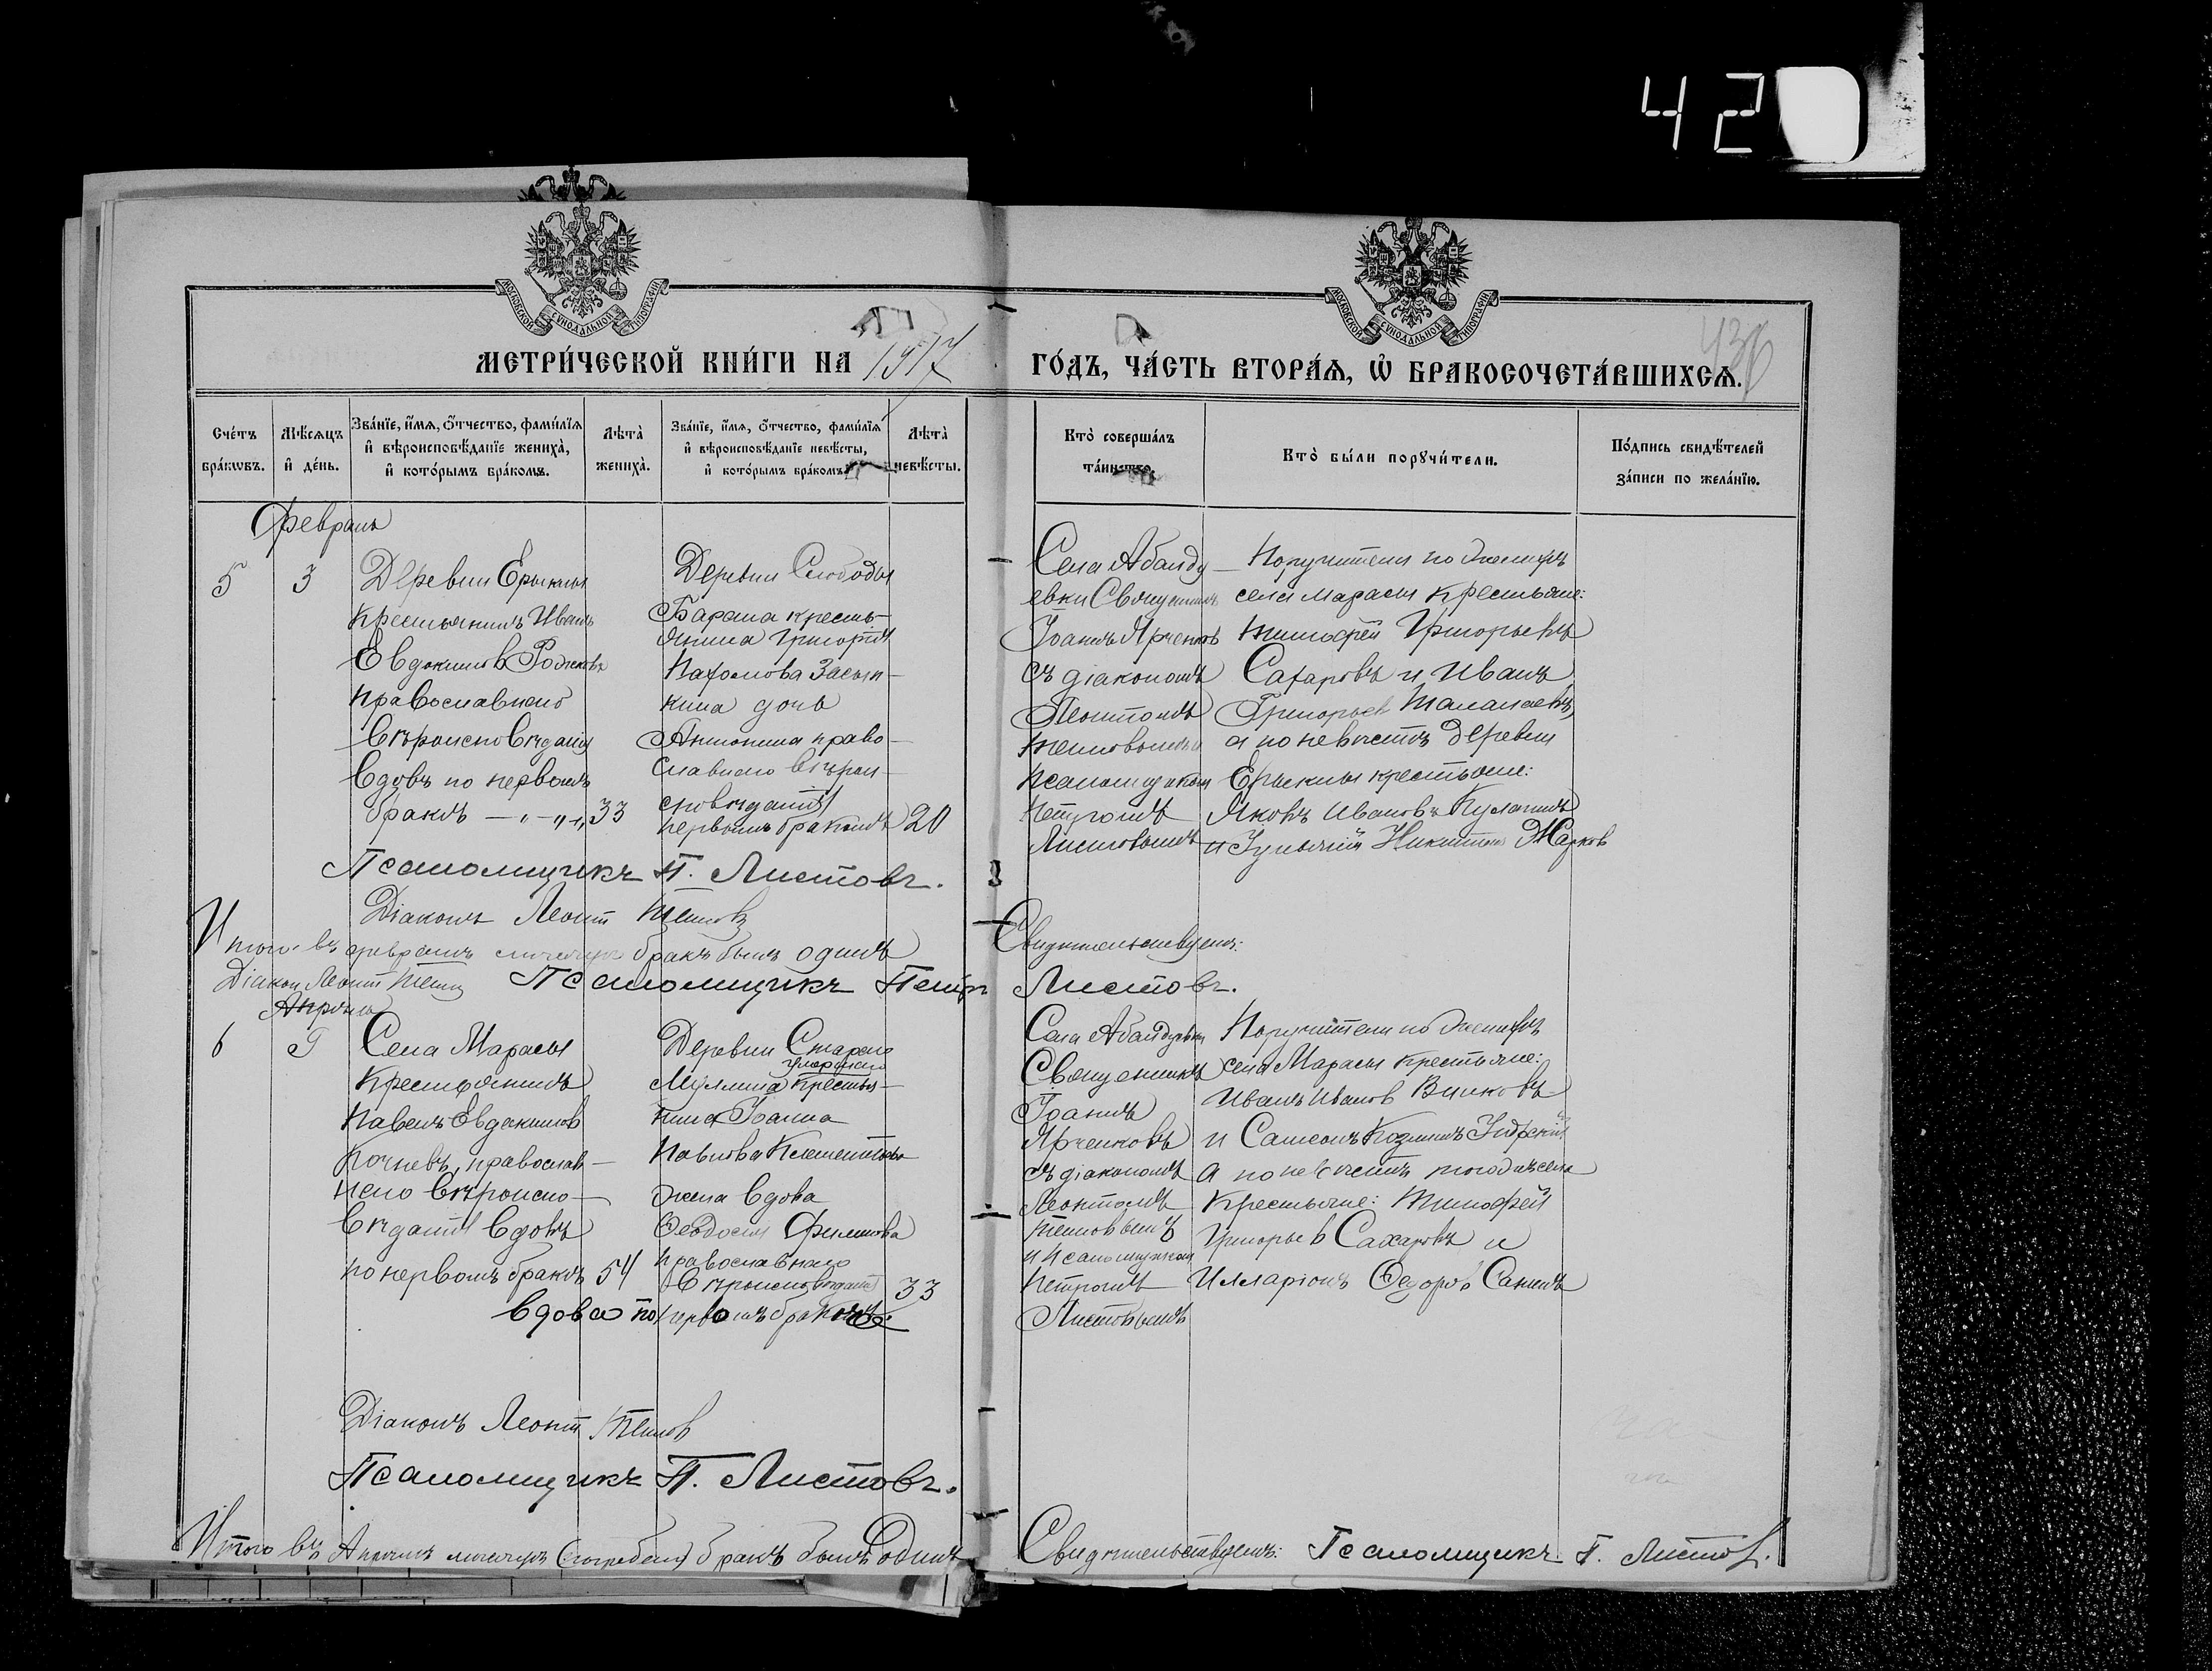 420
МОСКОВСКОЙ СѴНОДАЛЬНОЙ ТИПОГРАФІИ
МОСКОВСКОЙ СѴНОДАЛЬНОЙ ТИПОГРАФІИ
МЕТРИ́ЧЕСКОЙ КНИ́ГИ НА 1917
ГО́ДЪ, ЧА́СТЬ ВТОРА́Ѧ, Ѡ҆ БРАКОСОЧЕТА́ВШИХСѦ.
436
Сче́тъ бра́кѡвъ.
Мѣ́сѧцъ и҆ де́нь.
Зва́нїе, и҆́мѧ, о҆́тчество, фами́лїѧ
и҆ вѣроисповѣ́данїе жениха̀,
и҆ кото́рымъ бра́комъ.
Лѣта̀ жениха̀.
Зва́нїе, и҆́мѧ, о҆́тчество, фами́лїѧ
и҆ вѣроисповѣ́данїе невѣ́сты,
и҆ кото́рымъ бра́комъ.
Лѣта̀ невѣ́сты.
Кто̀ соверша́лъ
та́инство.
Кто̀ бы́ли порꙋчи́тели.
По́дпись свидѣ́телей
за́писи по жела́нїю.
Февраль
5
3
Деревни Ерыклы
крестьянинъ Иванъ
Евдокимовъ
православнаго
вѣроисповѣданія
вдовъ по первомъ
бракѣ 33
Деревни Слободы
кресть-
янина Григорія
Пахомова
кина дочь
Антонина право-
славнаго вѣрои-
сповѣданія
первымъ бракомъ 20
Села Абалду-
евки Священникъ
Іоаннъ Ярченковъ
съ діакономъ
Леонтомъ
Теповымъ и
псаломщикомъ
Петромъ
Листовымъ
Поручители по женихѣ
села Марасы крестьяне:
Тимофей Григорьевъ
Сахаровъ и Иванъ
Григорьев Талалаевъ,
а по невѣстѣ деревни
Ерыклы крестьяне:
Яковъ Ивановъ Кулагинъ
и Никитин Жарков
Псаломщикъ П. Листовъ.
Діаконъ Леонт Тепловъ
Итого въ февралѣ мѣсяцѣ бракъ былъ одинъ
Свидѣтельствуемъ:
Діакон Леонт
Псаломщикъ Петръ Листовъ.
Апрѣль
6
9
Села Марасы
Крестьянинъ
Павелъ Евдокимов
Кочневъ, православ-
наго вѣроиспо-
вѣданія вдовъ
по первомъ бракѣ 54
Деревни Стараго
умершаго
крестья-
нина Іоанна
Павлова
жена вдова
Ѳеодосія Филипова
православнаго
вѣроисповѣданія 33
вдова по первомъ бракѣ
Села Абалдуевки
Священникъ
Іоаннъ
Ярченковъ
съ діакономъ
Леонтомъ
Теповымъ
и псаломщикомъ
Петромъ
Листовымъ
Поручители по женихѣ
села Марасы крестьяне:
Иванъ Иванов
и Самсонъ Козминъ
а по невѣстѣ того же села
крестьяне: Тимофей
Григорьев Сахаровъ и
Илларіонъ Ѳедоров
Діаконъ Леонт
Псаломщикъ П. Листовъ.
Итого въ Апрѣлѣ мѣсяцѣ бракъ былъ Одинъ
Свидѣтельствуемъ: Псаломщикъ П. Листов.